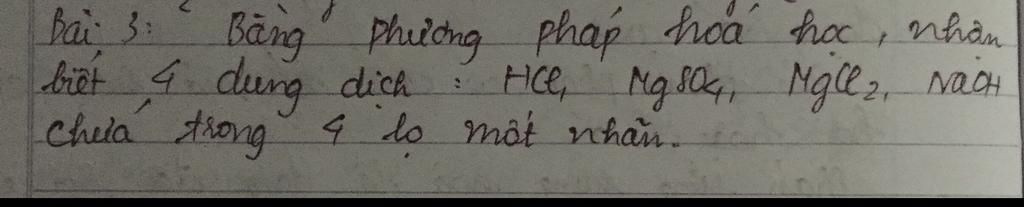 Bài 3: Bằng phương pháp hoá học, nhận
biết 4 dung dịch: HCl, MgSO4, MgCl2, NaOH
chứa trong 4 lọ mất nhãn.